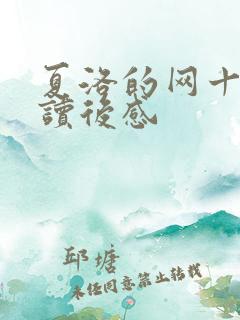 夏洛的网十
讀後感
邱塘
未经同意禁止转载